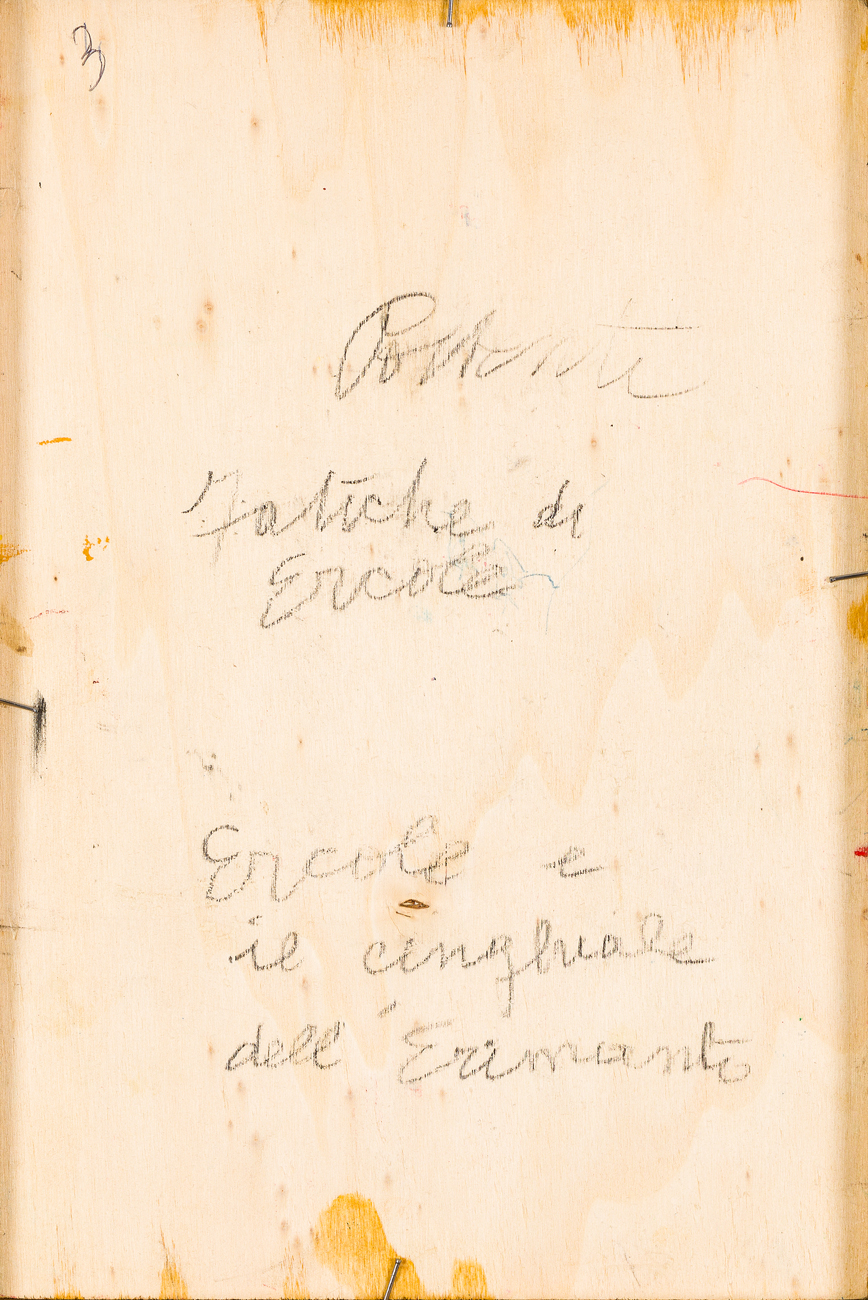 3
Fatiche di
Ercole
Ercole e
il cinghiale
dell'Erimanto